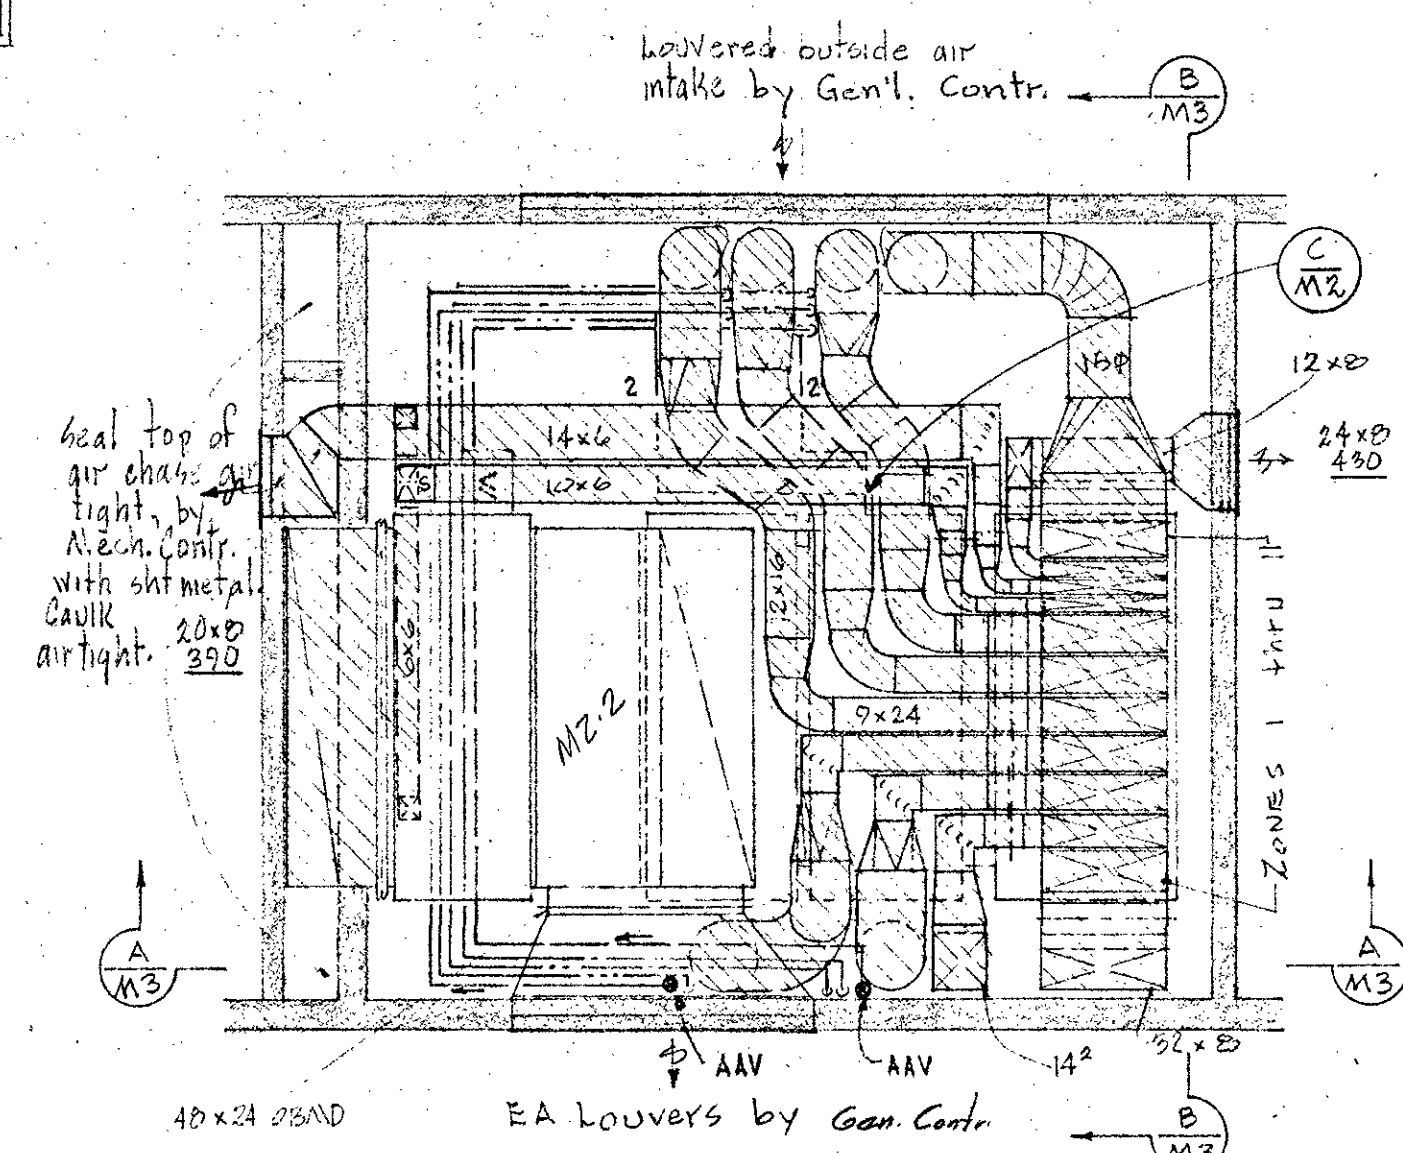 Louvered outside air
intake by Gen'l. Contr.
B
M3
C
M2
12x8
24x8
430
15φ
2
12
14x6
10x6
S
Seal top of
air chase air
tight, by
Mech. Contr.
with sht metal.
Caulk
airtight.
20x8
390
6x6
12x16
M2.2
9x24
ZONES 1 thru 11
A
M3
A
M3
AAV
AAV
14²
32x8
48x24 OBMD
EA Louvers by Gen. Contr.
B
M3